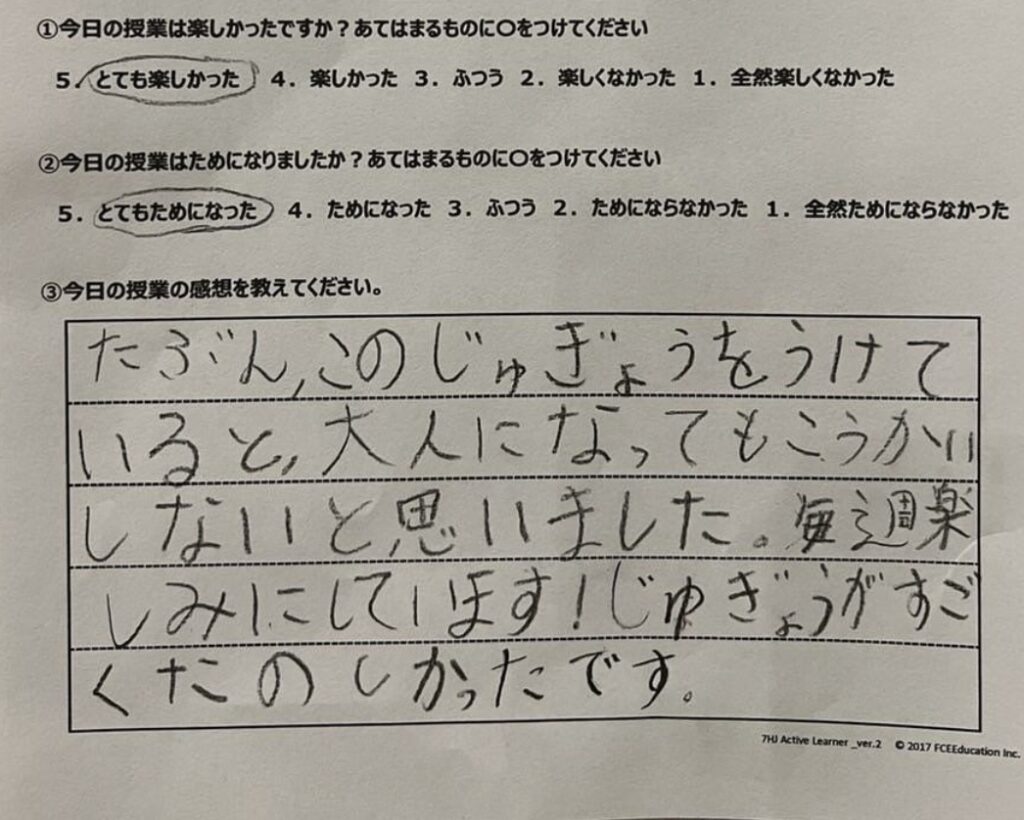 ①今日の授業は楽しかったですか？あてはまるものに〇をつけてください
5．とても楽しかった　4．楽しかった　3．ふつう　2．楽しくなかった　1．全然楽しくなかった
②今日の授業はためになりましたか？あてはまるものに〇をつけてください
5．とてもためになった　4．ためになった　3．ふつう　2．ためにならなかった　1．全然ためにならなかった
③今日の授業の感想を教えてください。
たぶん,このじゅぎょうをうけて
いると,大人になってもこうかい
しないと思いました。毎週楽
しみにしています！じゅぎょうがすご
くたのしかったです。
7HJ Active Learner _ver.2　© 2017 FCEEducation Inc.